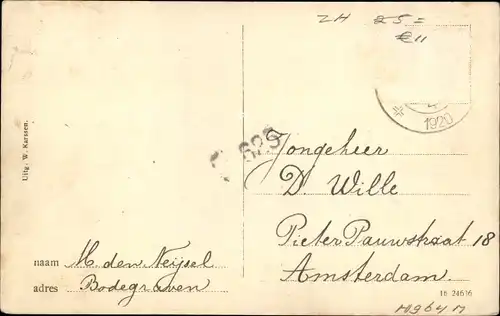 ZH 25=
€11
4
1920
623
Jongeheer
D. Wille
Pieter Pauwstraat 18
Amsterdam.
Uitg. W. Karssen.
naam M. den Neijsel
adres Bodegraven
16 24616